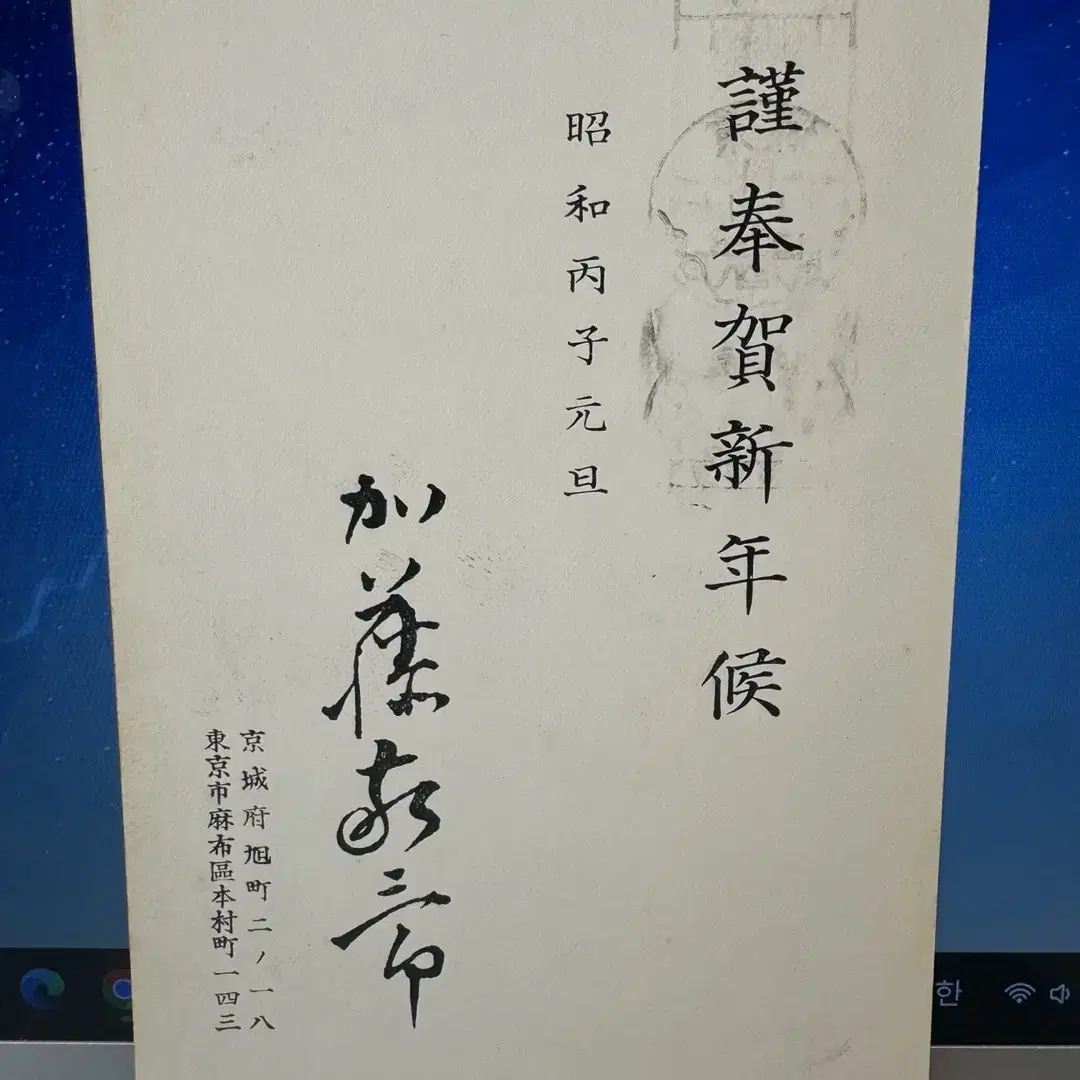 謹奉賀新年候
昭和丙子元旦
加藤敬三郎
京城府旭町二ノ一八
東京市麻布區本村町一四三
한